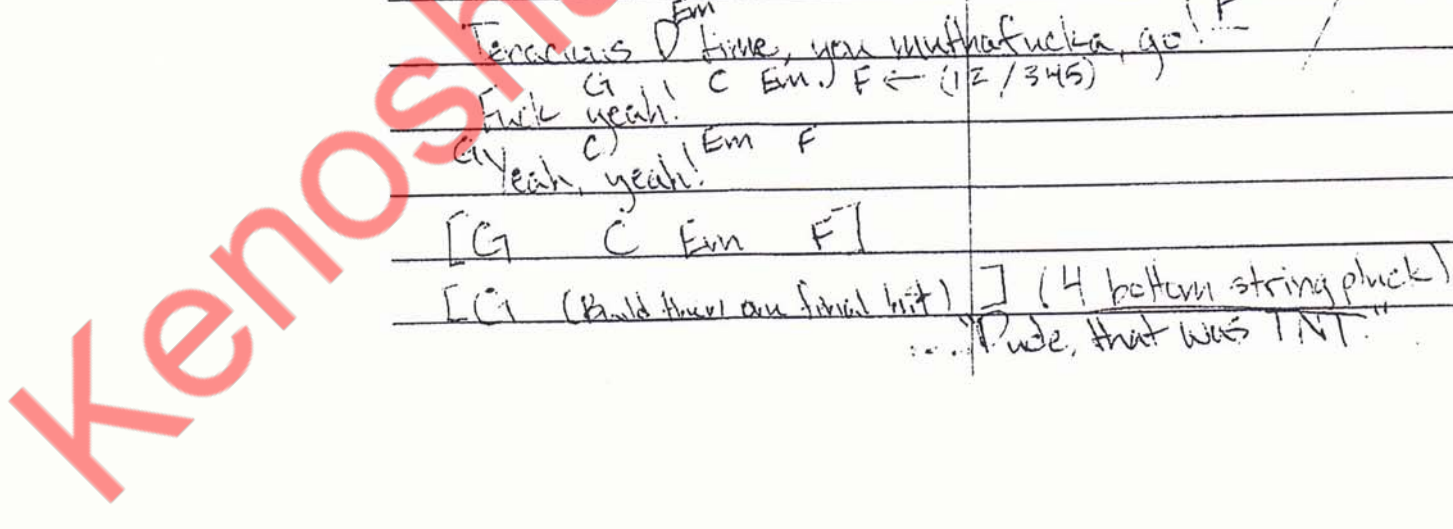 Em
Tenacious D time, you muthafucka, go! F
G C Em F ← (12/345)
Fuck yeah!
G C Em F
Yeah, yeah!
[G C Em F]
[G (Build then one final hit) ] (4 bottom string pluck)
..."Dude, that was TNT."
Kenosha